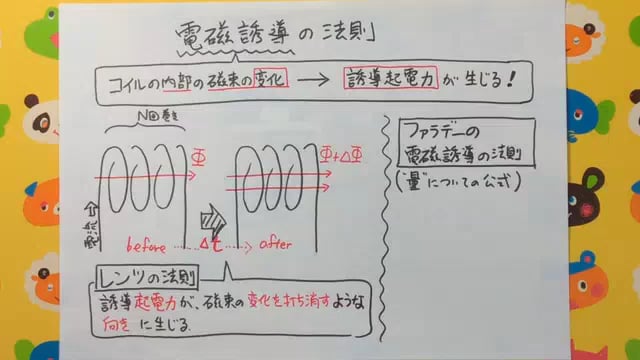 電磁誘導の法則
コイルの内部の磁束の変化 → 誘導起電力が生じる!
N回巻き
Φ
Φ+ΔΦ
before ...... Δt ...> after
レンツの法則
誘導起電力が、磁束の変化を打ち消すような
向きに生じる.
ファラデーの
電磁誘導の法則
("量"についての公式)